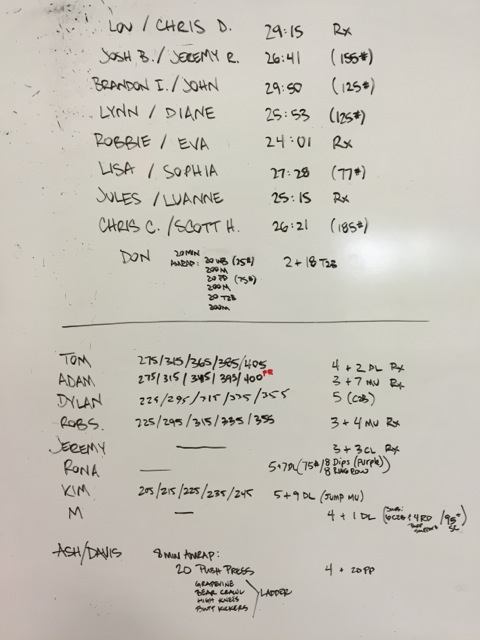 LOU / CHRIS D. 29:15 Rx
JOSH B. / JEREMY R. 26:41 (155#)
BRANDON I. / JOHN 29:50 (125#)
LYNN / DIANE 25:53 (125#)
ROBBIE / EVA 24:01 Rx
LISA / SOPHIA 27:28 (77#)
JULES / LUANNE 25:15 Rx
CHRIS C. / SCOTT H. 26:21 (185#)
DON 20 MIN AMRAP: 20 WB (75#) 2 + 18 T2B
200M
20 PP (75#)
200M
20 T2B
200M
TOM 275/315/365/385/405 4 + 2 DL Rx
ADAM 275/315/345/393/400 PR 3 + 7 MU Rx
DYLAN 225/295/315/335/355 5 (C2B)
ROB S. 225/295/315/335/355 3 + 4 MU Rx
JEREMY — 3 + 3 CL Rx
RONA — 5+7DL (75#/8 Dips (Purple))
8 RING ROW
KIM 205/215/225/235/245 5 + 9 DL (JUMP MU)
M — 4 + 1 DL (SUBS: 6 C2B + 4 RD /95#
ASH/DAVIS 8 MIN AMRAP:
20 PUSH PRESS 4 + 20 PP
GRAPEVINE
BEAR CRAWL
HIGH KNEES
BUTT KICKERS
LADDER